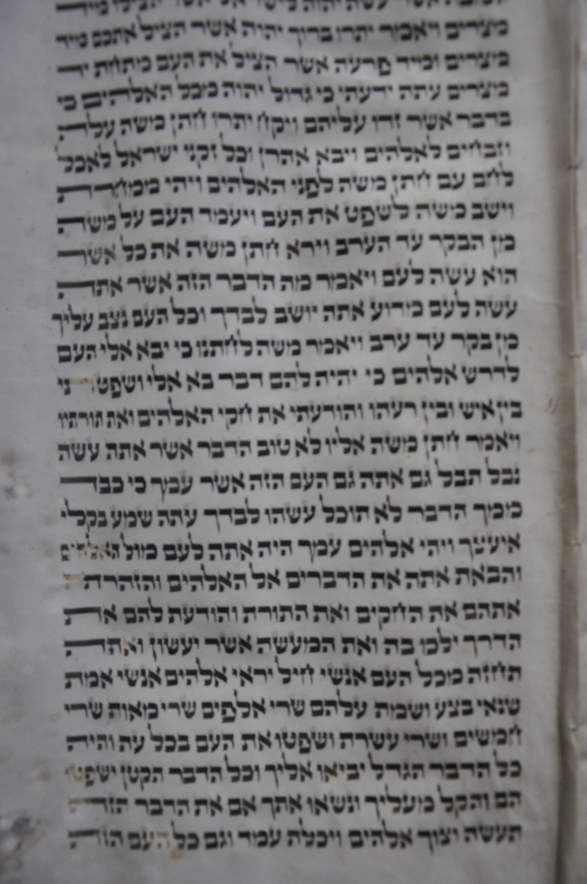 מצרים ויאמר יתרו ברוך יהוה אשר הציל אתכם מיד
מצרים ומיד פרעה אשר הציל את העם מתחת יד
מצרים עתה ידעתי כי גדול יהוה מכל האלהים כי
בדבר אשר זדו עליהם ויקח יתרו חתן משה עלה
וזבחים לאלהים ויבא אהרן וכל זקני ישראל לאכל
לחם עם חתן משה לפני האלהים ויהי ממחרת
וישב משה לשפט את העם ויעמד העם על משה
מן הבקר עד הערב וירא חתן משה את כל אשר
הוא עשה לעם ויאמר מה הדבר הזה אשר אתה
עשה לעם מדוע אתה יושב לבדך וכל העם נצב עליך
מן בקר עד ערב ויאמר משה לחתנו כי יבא אלי העם
לדרש אלהים כי יהיה להם דבר בא אלי ושפטתי
בין איש ובין רעהו והודעתי את חקי האלהים ואת תורתיו
ויאמר חתן משה אליו לא טוב הדבר אשר אתה עשה
נבל תבל גם אתה גם העם הזה אשר עמך כי כבד
ממך הדבר לא תוכל עשהו לבדך עתה שמע בקלי
איעצך ויהי אלהים עמך היה אתה לעם מול האלהים
והבאת אתה את הדברים אל האלהים והזהרתה
אתהם את החקים ואת התורת והודעת להם את
הדרך ילכו בה ואת המעשה אשר יעשון ואתה
תחזה מכל העם אנשי חיל יראי אלהים אנשי אמת
שנאי בצע ושמת עלהם שרי אלפים שרי מאות שרי
חמשים ושרי עשרת ושפטו את העם בכל עת והיה
כל הדבר הגדל יביאו אליך וכל הדבר הקטן ישפטו
הם והקל מעליך ונשאו אתך אם את הדבר הזה
תעשה וצוך אלהים ויכלת עמד וגם כל העם הזה